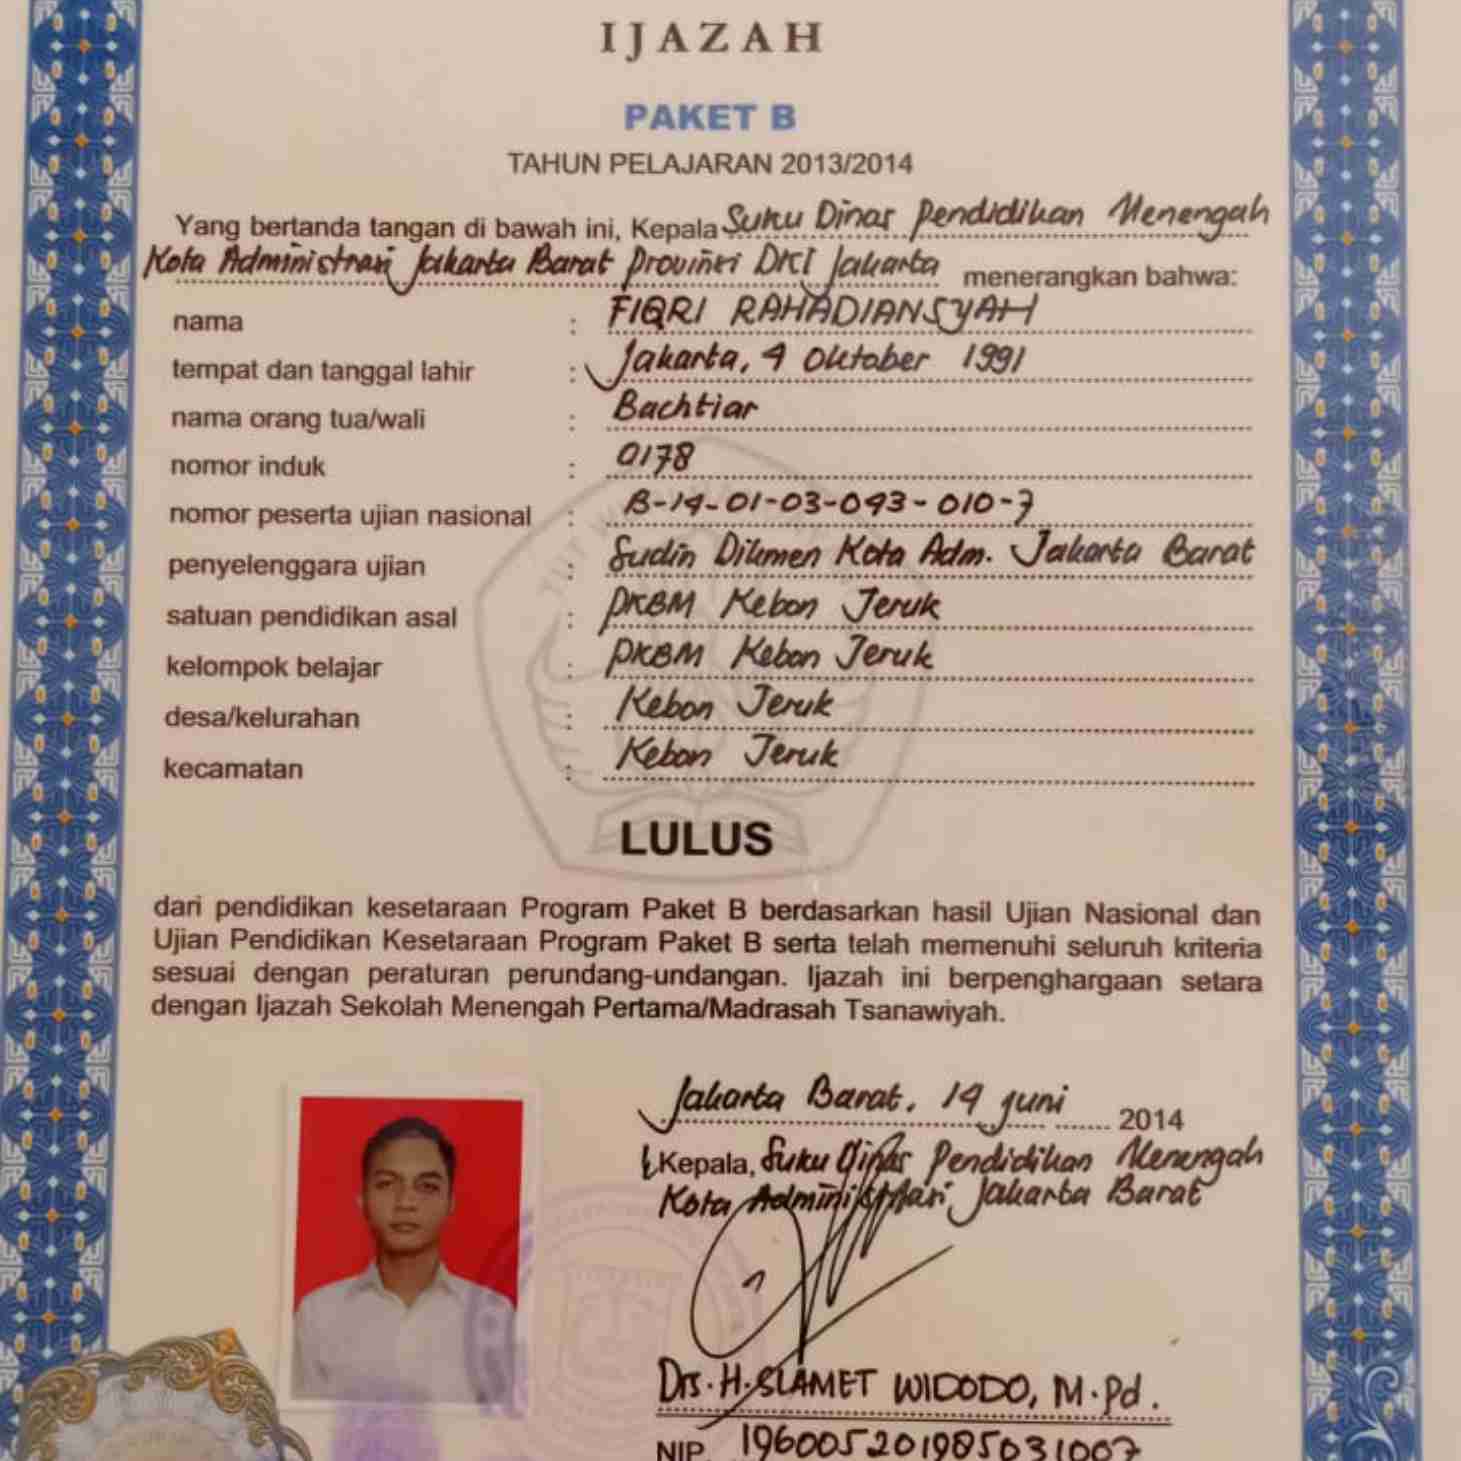 IJAZAH
PAKET B
TAHUN PELAJARAN 2013/2014
Yang bertanda tangan di bawah ini, Kepala Suku Dinas Pendidikan Menengah
Kota Administrasi Jakarta Barat Provinsi DKI Jakarta menerangkan bahwa:
nama : FIQRI RAHADIANSYAH
tempat dan tanggal lahir : Jakarta, 4 Oktober 1991
nama orang tua/wali : Bachtiar
nomor induk : 0178
nomor peserta ujian nasional : B-14-01-03-043-010-7
penyelenggara ujian : Sudin Dikmen Kota Adm. Jakarta Barat
satuan pendidikan asal : PKBM Kebon Jeruk
kelompok belajar : PKBM Kebon Jeruk
desa/kelurahan : Kebon Jeruk
kecamatan : Kebon Jeruk
LULUS
dari pendidikan kesetaraan Program Paket B berdasarkan hasil Ujian Nasional dan
Ujian Pendidikan Kesetaraan Program Paket B serta telah memenuhi seluruh kriteria
sesuai dengan peraturan perundang-undangan. Ijazah ini berpenghargaan setara
dengan Ijazah Sekolah Menengah Pertama/Madrasah Tsanawiyah.
Jakarta Barat, 14 Juni 2014
Kepala, Suku Dinas Pendidikan Menengah
Kota Administrasi Jakarta Barat
Drs. H. SLAMET WIDODO, M.Pd.
NIP. 196005201985031007